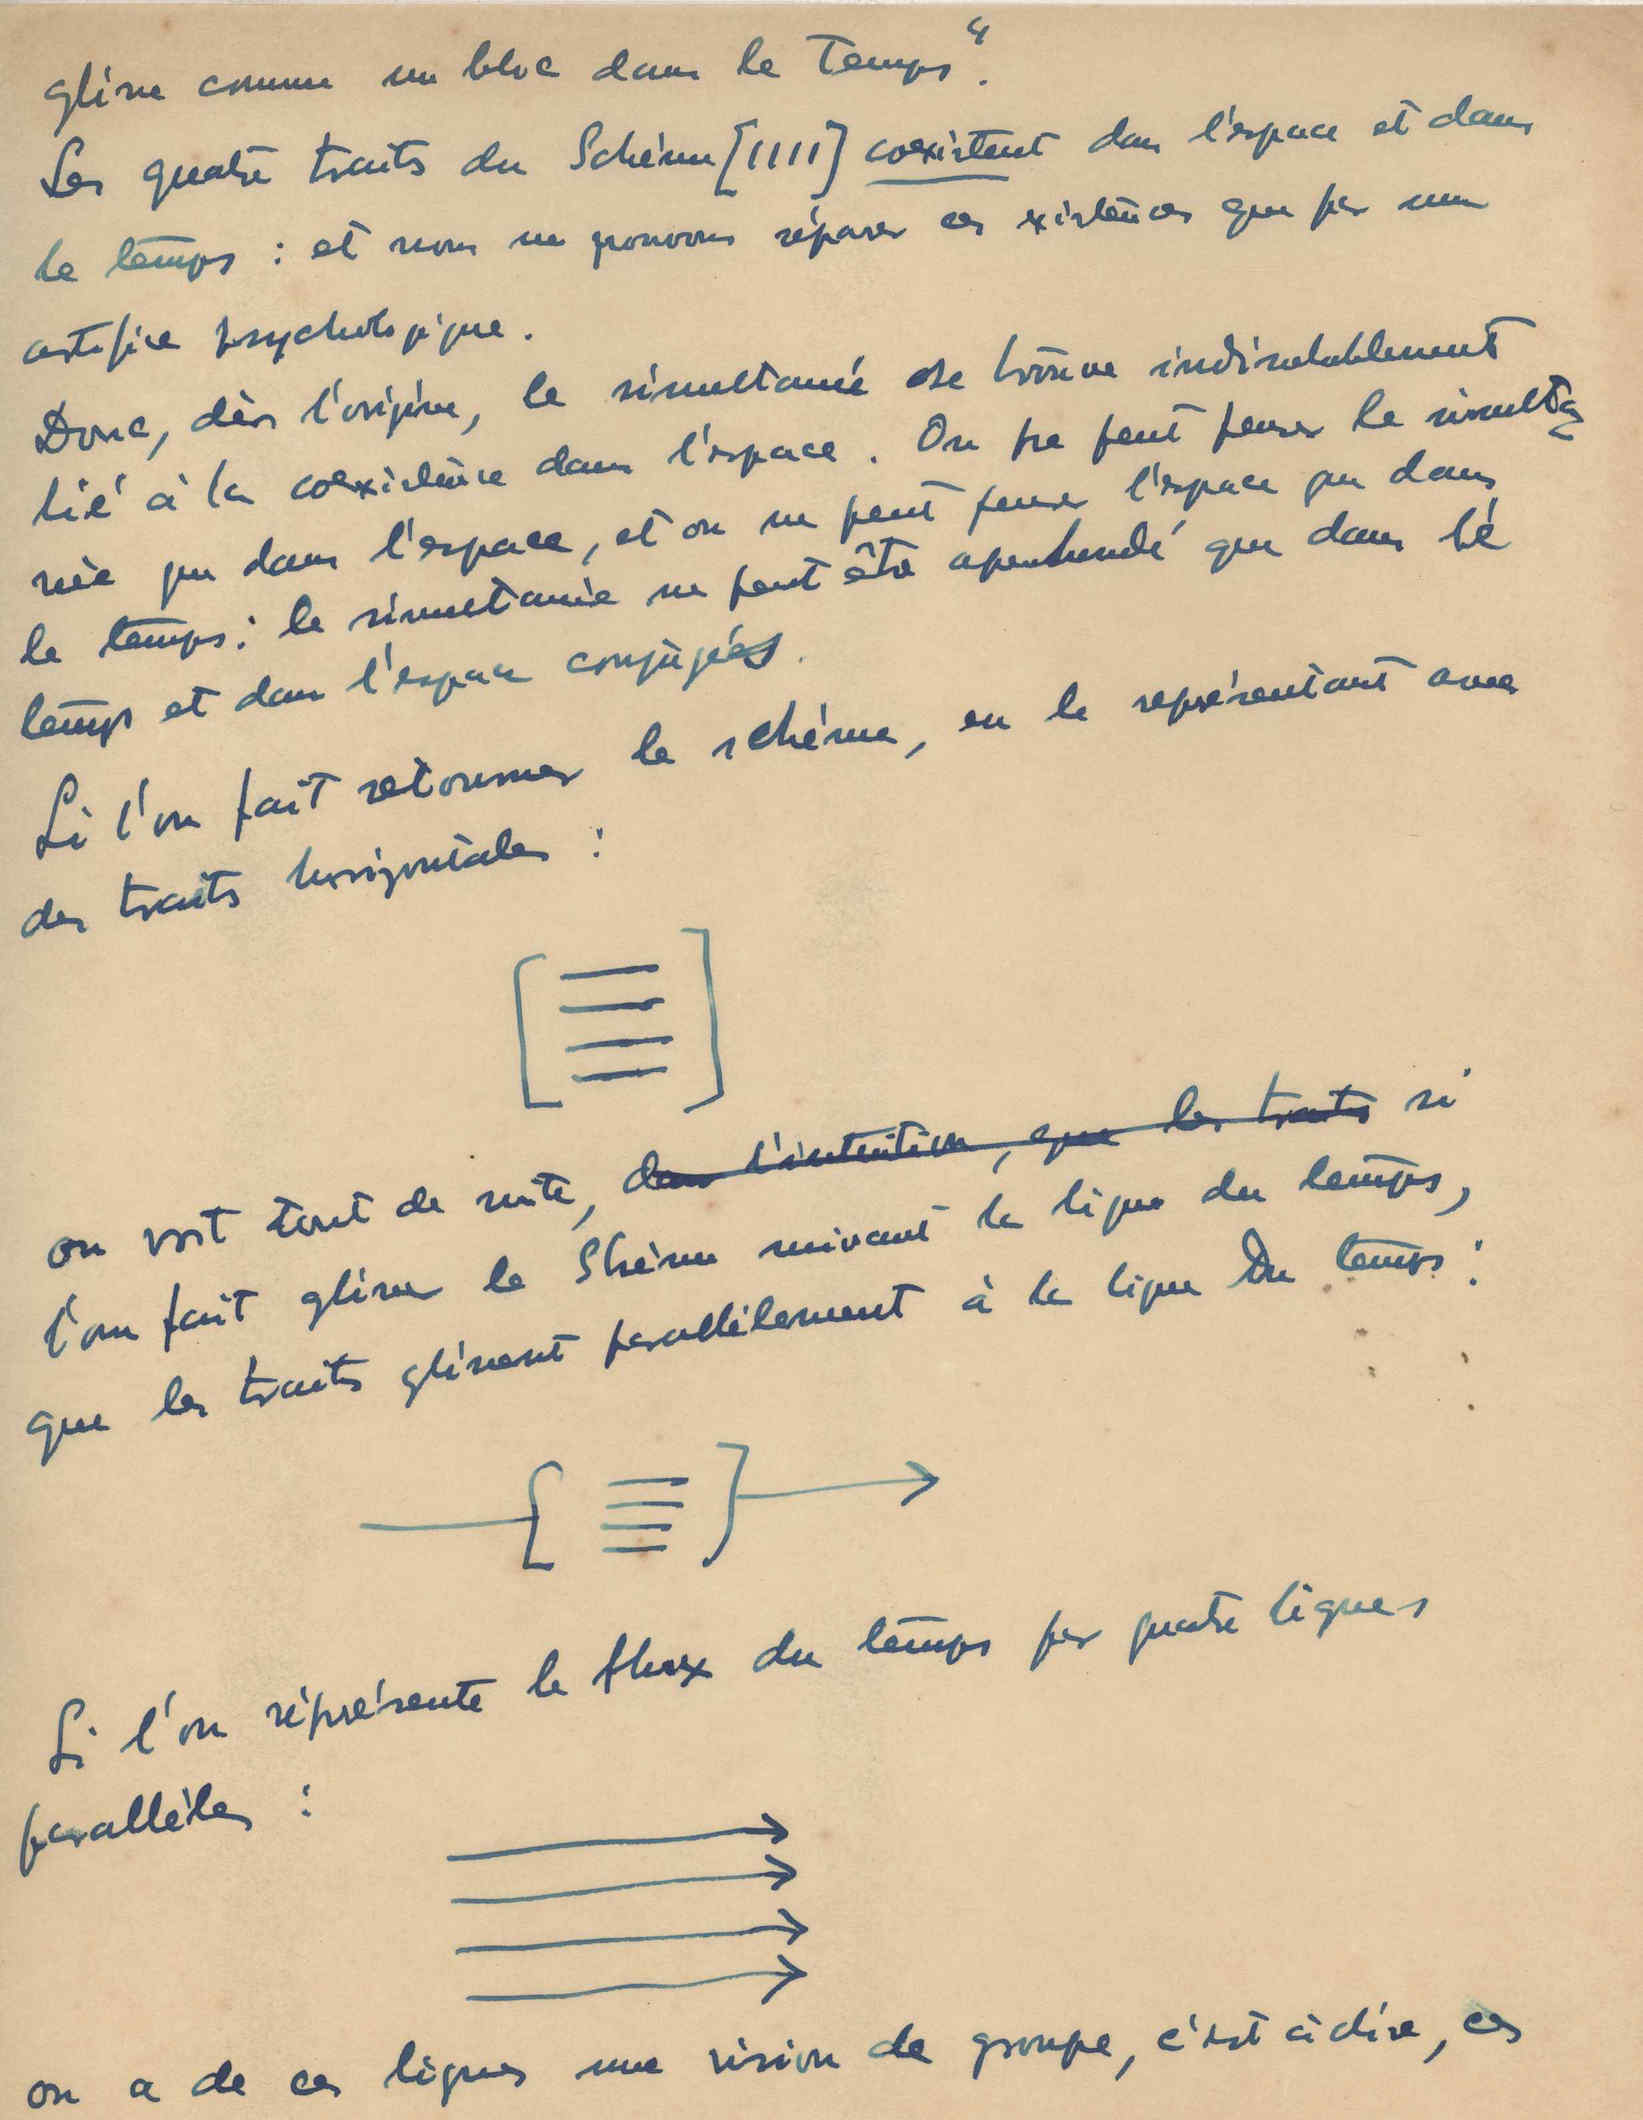 glisse comme un bloc dans le Temps".
Les quatre traits du Schème [||||] coexistent dans l'espace et dans
le temps : et nous ne pouvons séparer ces existences que par une
artifice psychologique.
Donc, dès l'origine, le simultané se trouve indissolublement
lié à la coexistence dans l'espace. On ne peut penser le simulta
née que dans l'espace, et on ne peut penser l'espace que dans
le temps : le simultanée ne peut être apenhendé que dans le
temps et dans l'espace conjugés.
Si l'on fait retourner le schème, en le représentant avec
des traits horizontales :
on voit tout de suite, dans l'intuition, que les traits si
l'on fait glisser le Shème suivant la ligne du temps,
que les traits glissent parallèlement à la ligne Du temps :
Si l'on réprésente le flux du temps par quatre lignes
parallèles :
on a de ces lignes une vision de groupe, c'est à dire, ces